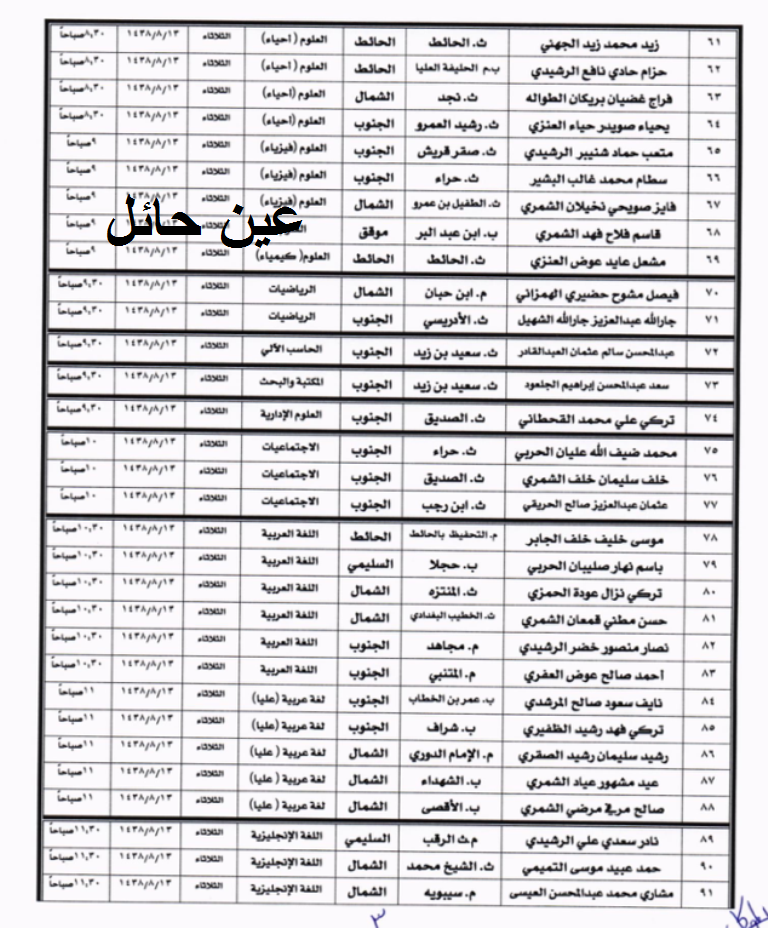 ٦١ زيد محمد زيد الجهني ث. الحائط الحائط العلوم (احياء) الثلاثاء ١٤٣٨/٨/١٣ ٨,٣٠صباحاً
٦٢ حزام حادي نافع الرشيدي ب.م الحليفة العليا الحائط العلوم (احياء) الثلاثاء ١٤٣٨/٨/١٣ ٨,٣٠صباحاً
٦٣ فراج غضيان بريكان الطواله ث. نجد الشمال العلوم (احياء) الثلاثاء ١٤٣٨/٨/١٣ ٨,٣٠صباحاً
٦٤ يحياء صويدر حياء العنزي ث. رشيد العمرو الجنوب العلوم (احياء) الثلاثاء ١٤٣٨/٨/١٣ ٨,٣٠صباحاً
٦٥ متعب حماد شنيبر الرشيدي ث. صقر قريش الجنوب العلوم (فيزياء) الثلاثاء ١٤٣٨/٨/١٣ ٩صباحاً
٦٦ سطام محمد غالب البشير ث. حراء الجنوب العلوم (فيزياء) الثلاثاء ١٤٣٨/٨/١٣ ٩صباحاً
٦٧ فايز صويحي نخيلان الشمري ث. الطفيل بن عمرو الشمال العلوم (فيزياء) الثلاثاء ١٤٣٨/٨/١٣ ٩صباحاً
عين حائل
٦٨ قاسم فلاح فهد الشمري ب. ابن عبد البر موقق ٩صباحاً
٦٩ مشعل عايد عوض العنزي ث. الحائط الحائط العلوم (كيمياء) الثلاثاء ١٤٣٨/٨/١٣ ٩صباحاً
٧٠ فيصل مشوح حضيري الهمزاني م. ابن حيان الشمال الرياضيات الثلاثاء ١٤٣٨/٨/١٣ ٩,٣٠صباحاً
٧١ جارالله عبدالعزيز جارالله الشهيل ث. الأدريسي الجنوب الرياضيات الثلاثاء ١٤٣٨/٨/١٣ ٩,٣٠صباحاً
٧٢ عبدالمحسن سالم عثمان العبدالقادر ث. سعيد بن زيد الجنوب الحاسب الآلي الثلاثاء ١٤٣٨/٨/١٣ ٩,٣٠صباحاً
٧٣ سعد عبدالمحسن إبراهيم الجلعود ث. سعيد بن زيد الجنوب المكتبة والبحث الثلاثاء ١٤٣٨/٨/١٣ ٩,٣٠صباحاً
٧٤ تركي علي محمد القحطاني ث. الصديق الجنوب العلوم الإدارية الثلاثاء ١٤٣٨/٨/١٣ ٩,٣٠صباحاً
٧٥ محمد ضيف الله عليان الحربي ث. حراء الجنوب الاجتماعيات الثلاثاء ١٤٣٨/٨/١٣ ١٠صباحاً
٧٦ خلف سليمان خلف الشمري ث. الصديق الجنوب الاجتماعيات الثلاثاء ١٤٣٨/٨/١٣ ١٠صباحاً
٧٧ عثمان عبدالعزيز صالح الحريقي ث. ابن رجب الجنوب الاجتماعيات الثلاثاء ١٤٣٨/٨/١٣ ١٠صباحاً
٧٨ موسى خليف خلف الجابر م. التحفيظ بالحائط الحائط اللغة العربية الثلاثاء ١٤٣٨/٨/١٣ ١٠,٣٠صباحاً
٧٩ باسم نهار صليبان الحربي ب. حجلا السليمي اللغة العربية الثلاثاء ١٤٣٨/٨/١٣ ١٠,٣٠صباحاً
٨٠ تركي نزال عودة الحمزي ث. المنتزه الشمال اللغة العربية الثلاثاء ١٤٣٨/٨/١٣ ١٠,٣٠صباحاً
٨١ حسن مطني قمعان الشمري ث. الخطيب البغدادي الشمال اللغة العربية الثلاثاء ١٤٣٨/٨/١٣ ١٠,٣٠صباحاً
٨٢ نصار منصور خضر الرشيدي م. مجاهد الجنوب اللغة العربية الثلاثاء ١٤٣٨/٨/١٣ ١٠,٣٠صباحاً
٨٣ احمد صالح عوض العفري م. المتنبي الجنوب اللغة العربية الثلاثاء ١٤٣٨/٨/١٣ ١٠,٣٠صباحاً
٨٤ نايف سعود صالح المرشدي ب. عمر بن الخطاب الجنوب لغة عربية (عليا) الثلاثاء ١٤٣٨/٨/١٣ ١١صباحاً
٨٥ تركي فهد رشيد الظفيري ب. شراف الجنوب لغة عربية (عليا) الثلاثاء ١٤٣٨/٨/١٣ ١١صباحاً
٨٦ رشيد سليمان رشيد الصقري م. الإمام الدوري الشمال لغة عربية (عليا) الثلاثاء ١٤٣٨/٨/١٣ ١١صباحاً
٨٧ عيد مشهور عياد الشمري ب. الشهداء الشمال لغة عربية (عليا) الثلاثاء ١٤٣٨/٨/١٣ ١١صباحاً
٨٨ صالح مرضي الشمري ب. الأقصى الشمال لغة عربية (عليا) الثلاثاء ١٤٣٨/٨/١٣ ١١صباحاً
٨٩ نادر سعدي علي الرشيدي م.ث الرقب السليمي اللغة الإنجليزية الثلاثاء ١٤٣٨/٨/١٣ ١١,٣٠صباحاً
٩٠ حمد عبيد موسى التميمي ث. الشيخ محمد الشمال اللغة الإنجليزية الثلاثاء ١٤٣٨/٨/١٣ ١١,٣٠صباحاً
٩١ مشاري محمد عبدالمحسن العيسى م. سيبويه الشمال اللغة الإنجليزية الثلاثاء ١٤٣٨/٨/١٣ ١١,٣٠صباحاً
٣